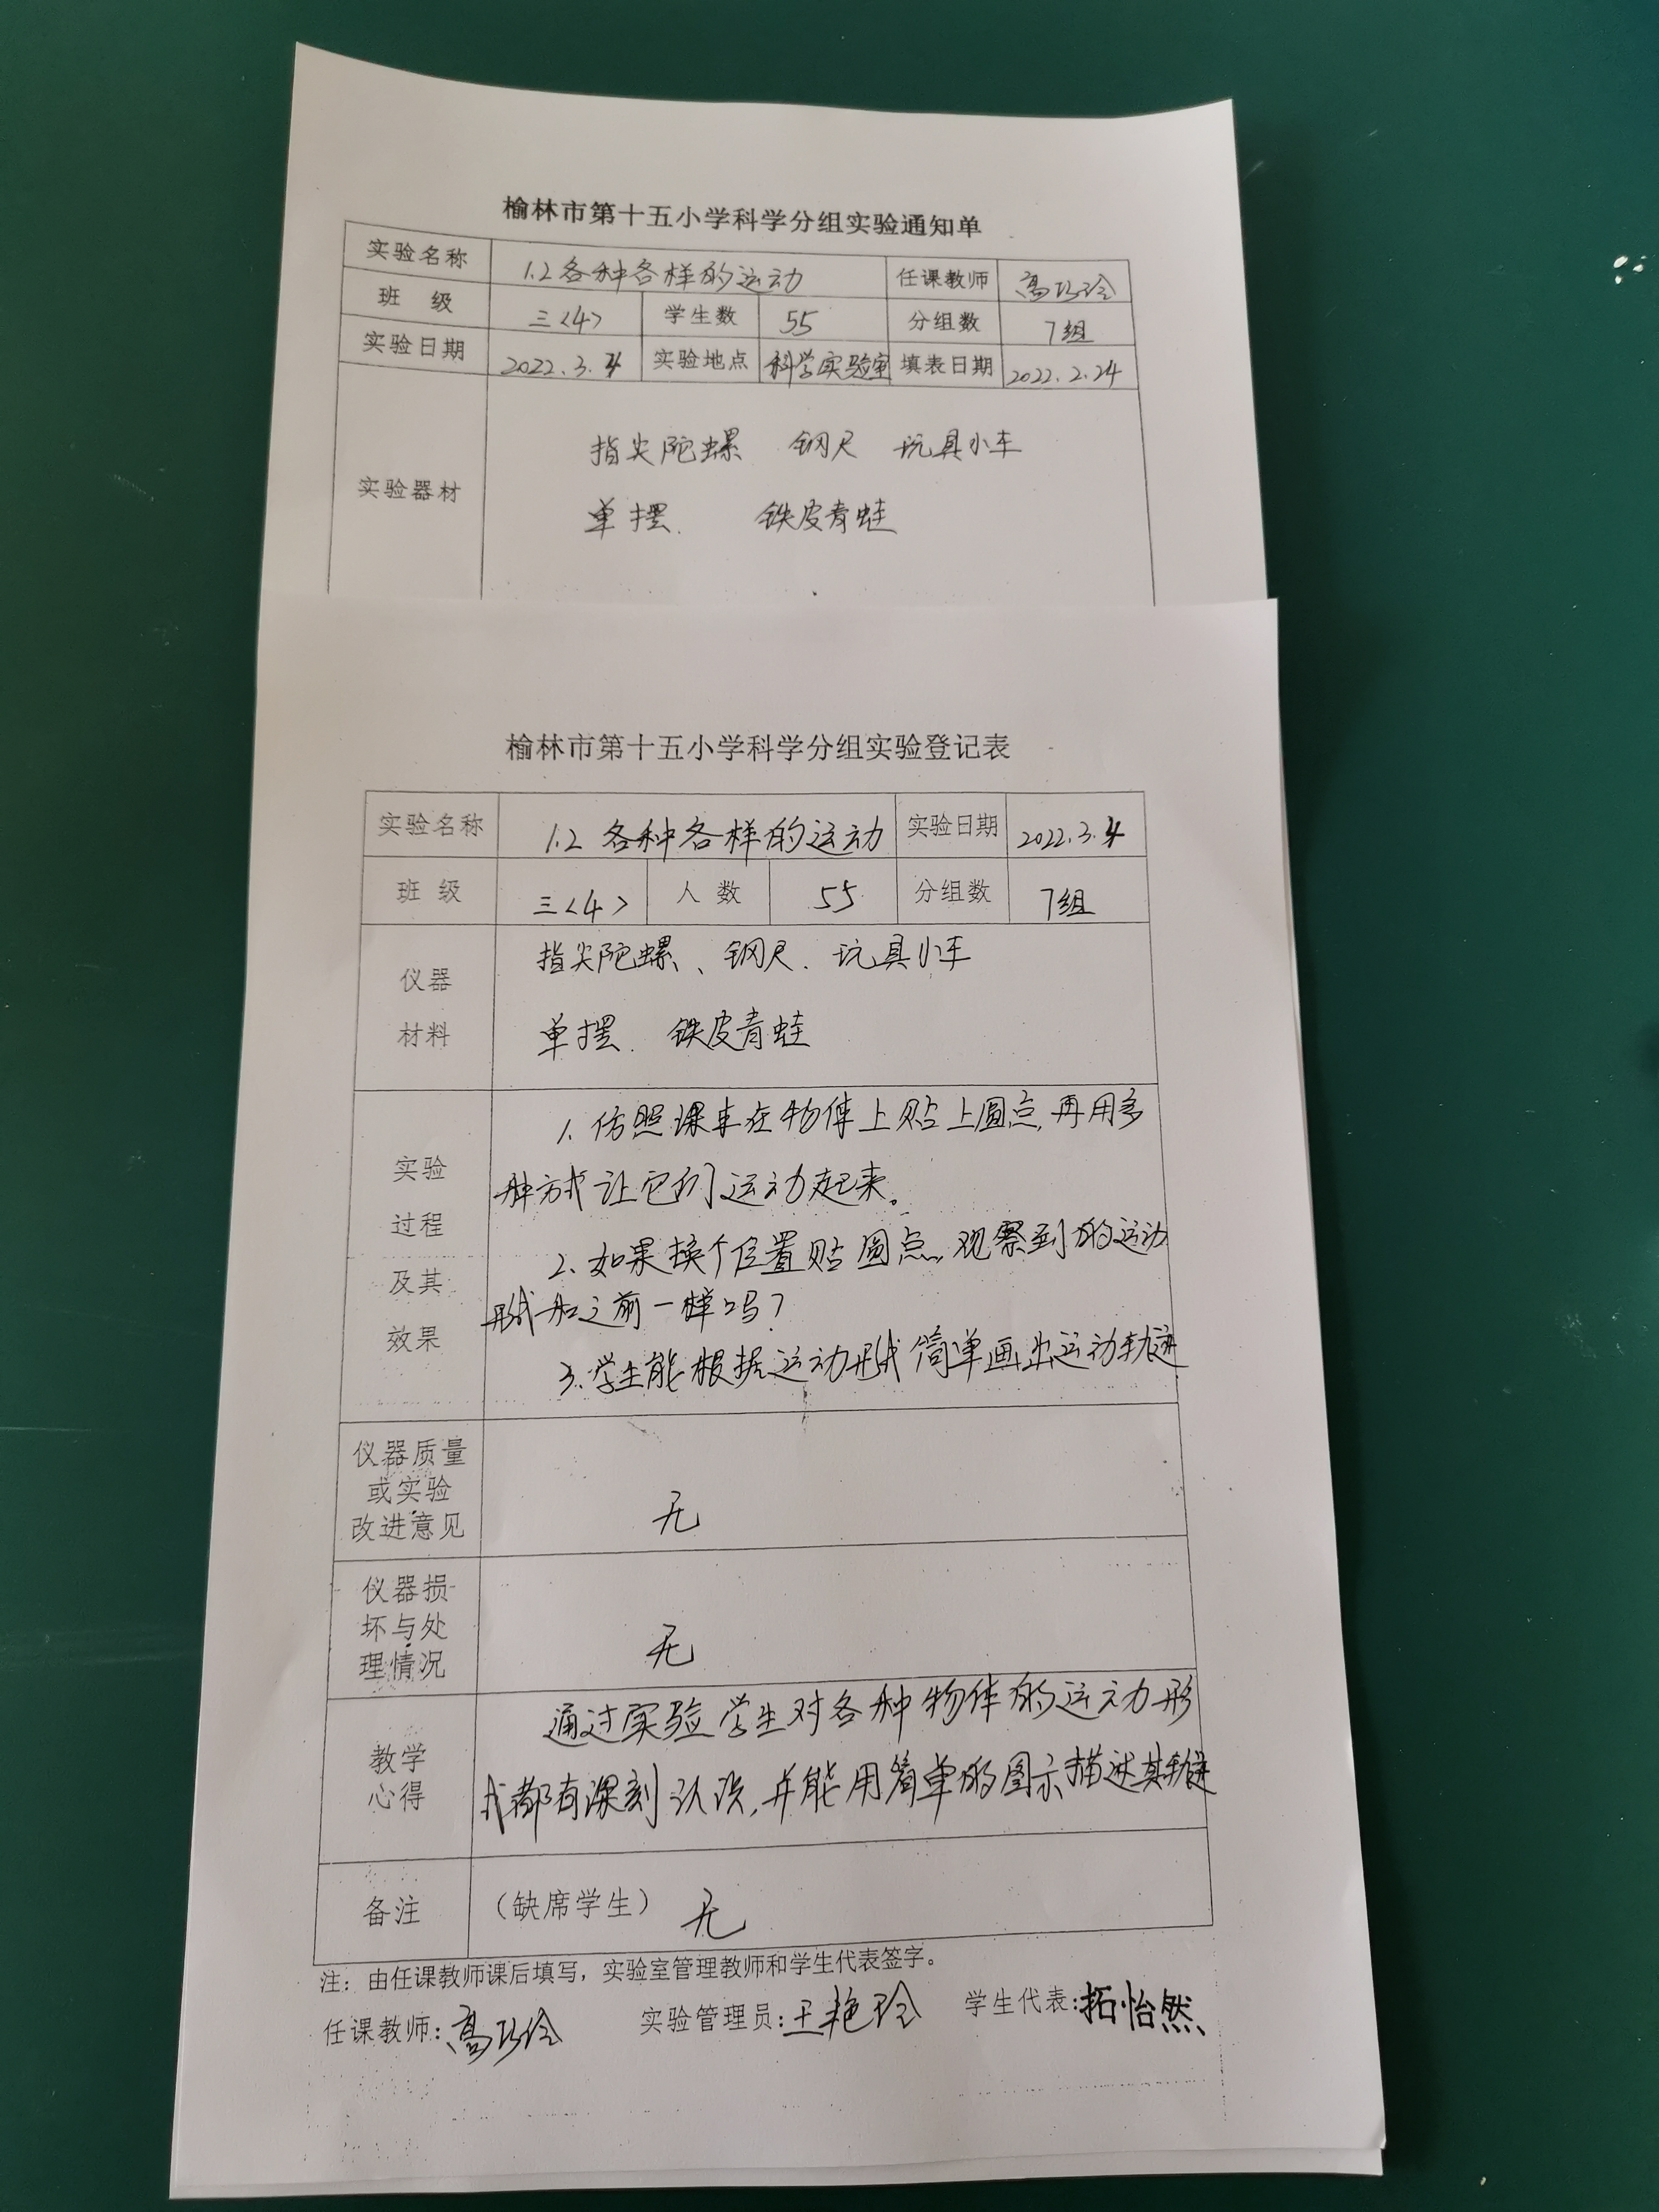 榆林市第十五小学科学分组实验通知单
实验名称 1.2各种各样的运动 任课教师 高巧玲
班 级 三<4> 学生数 55 分组数 7组
实验日期 2022.3.4 实验地点 科学实验室 填表日期 2022.2.24
指尖陀螺 钢尺 玩具小车
实验器材
单摆. 铁皮青蛙
榆林市第十五小学科学分组实验登记表
实验名称 1.2 各种各样的运动 实验日期 2022.3.4
班 级 三<4> 人 数 55 分组数 7组
指尖陀螺、钢尺、玩具小车
仪器
材料
单摆. 铁皮青蛙
实验
过程
及其
效果
1. 仿照课本在物体上贴上圆点,再用多
种方式让它们运动起来。
2. 如果换个位置贴圆点,观察到的运动
形式和之前一样吗?
3. 学生能根据运动形式简单画出运动轨迹
仪器质量
或实验
改进意见
无
仪器损
坏与处
理情况
无
教学
心得
通过实验学生对各种物体的运动形
式都有深刻认识,并能用简单的图示描述其轨迹
备注 (缺席学生) 无
注:由任课教师课后填写,实验室管理教师和学生代表签字。
任课教师:高巧玲 实验管理员:王艳玲 学生代表:拓怡然